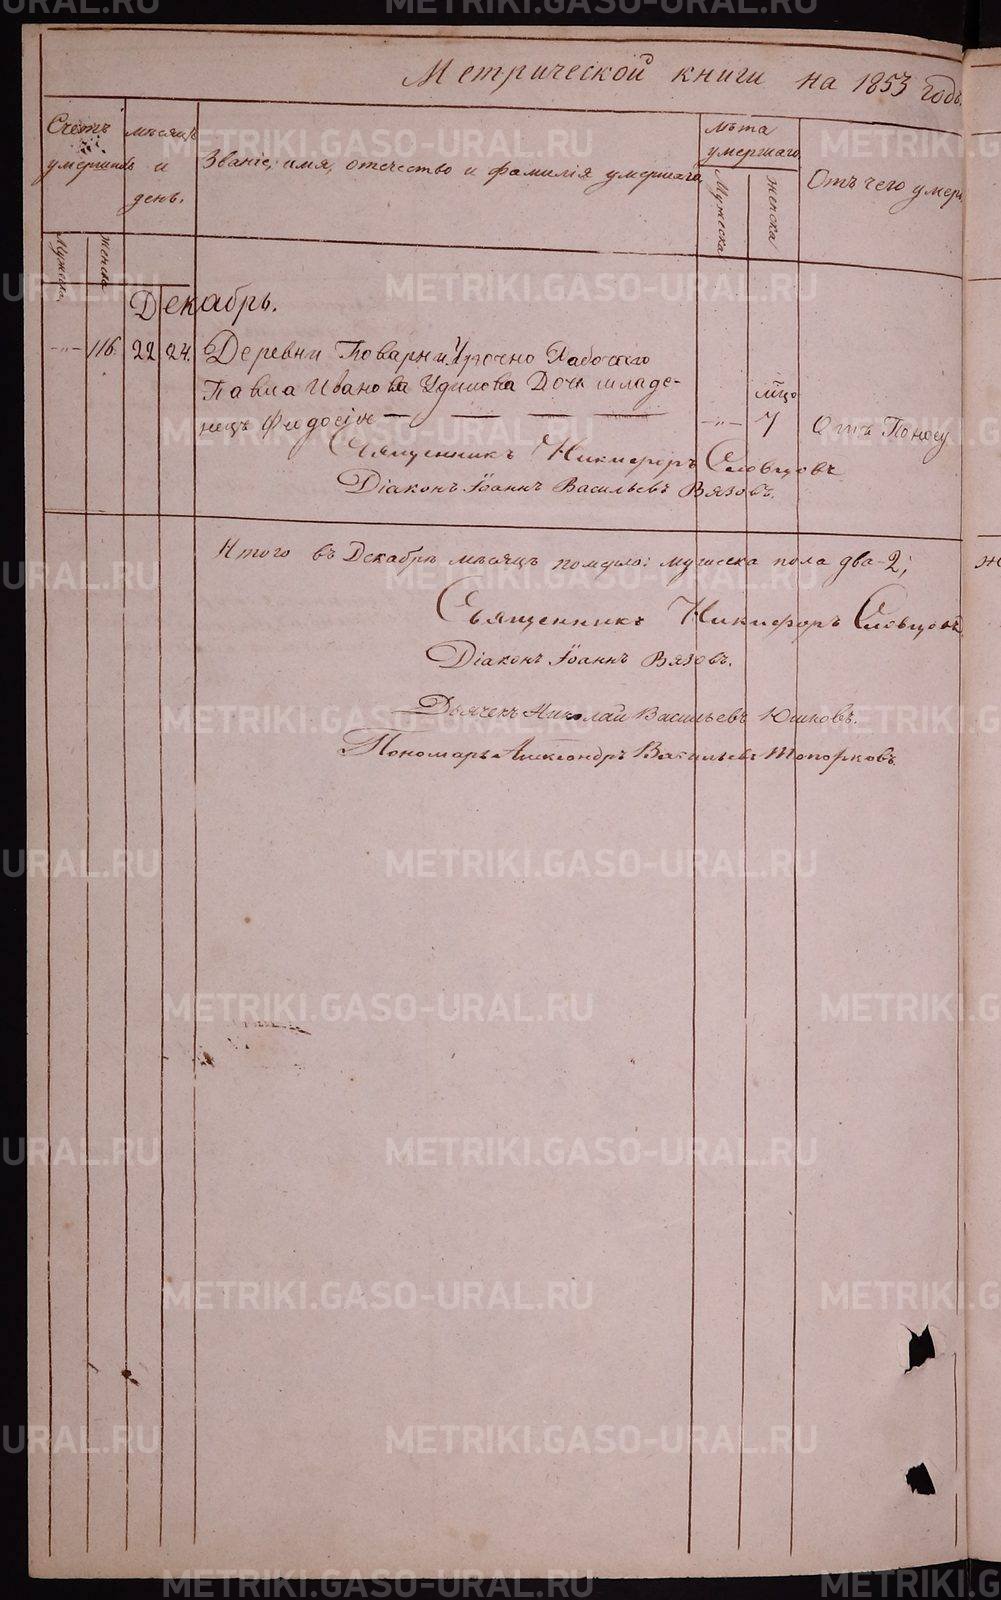 Метрической книги на 1853 годъ.
Счетъ умершихъ
мѣсяцъ и день.
Званіе, имя, отечество и фамилія умершаго
лѣта умершаго
Отъ чего умеръ
Мужеска
женска
Мужеска
женска
Декабрь.
—„— 116. 22 24. Деревни Поварни Урочно Рабочаго
Павла Иванова Удилова Дочь младе-
мѣ͠цо
нецъ Феодосія —„— 7 Отъ Поносу
Священникъ Никифоръ Словцовъ
Діаконъ Іоаннъ Васильевъ Вязовъ.
Итого въ Декабрѣ мѣсяцѣ померло: мужеска пола два-2;
Священникъ Никифоръ Словцовъ
Діаконъ Іоаннъ Вязовъ.
Дьячекъ Николай Васильевъ Юшковъ.
Пономарь Александръ Васильевъ Топорковъ.
METRIKI.GASO-URAL.RU